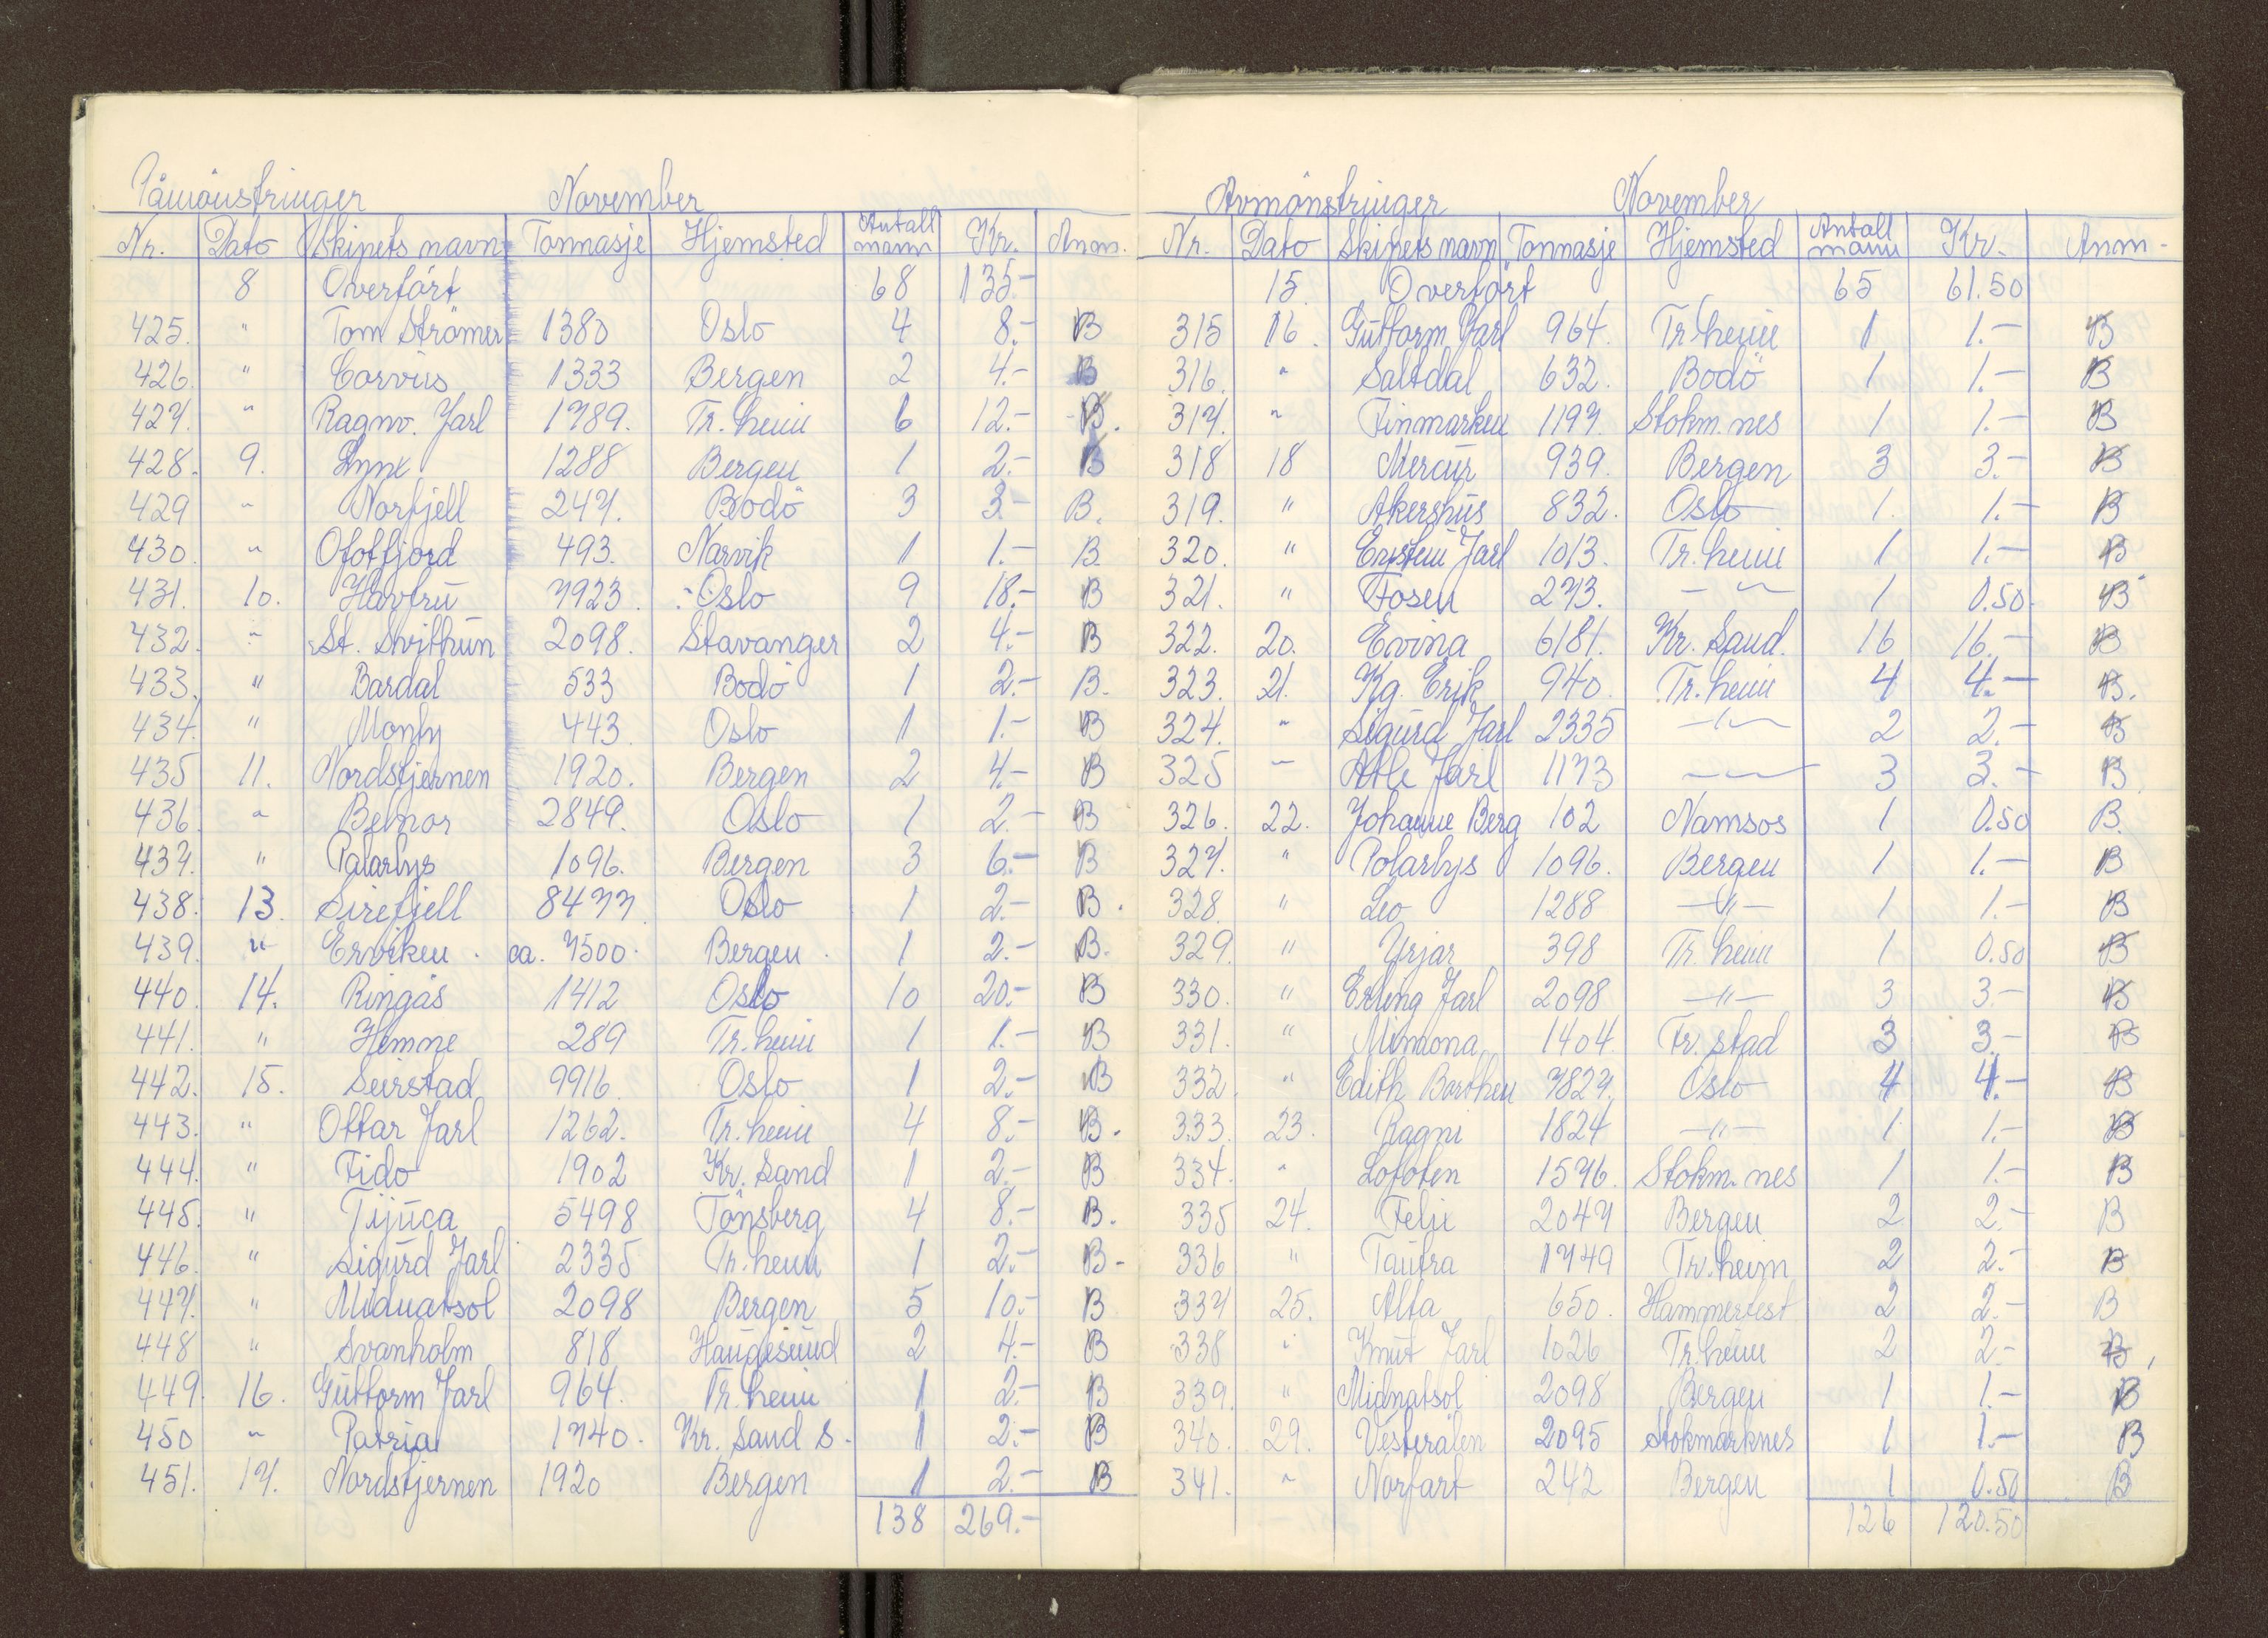 Påmönstringer November
Nr. Dato Skipets navn Tonnasje Hjemsted Antall mann Kr. Anm.
8 Overfört 68 135.-
425. " Tom Strömer 1380 Oslo 4 8.- B
426. " Corvus 1333 Bergen 2 4.- B
427. " Ragnv. Jarl 1789. Tr.heim 6 12.- B.
428. 9. Lynx 1288 Bergen 1 2.- B
429 " Norfjell 247. Bodö 3 3.- B.
430. " Ofotfjord 493. Narvik 1 1.- B.
431. 10. Havfru 7923. Oslo 9 18.- B
432. " St. Svithun 2098. Stavanger 2 4.- B
433. " Bardal 533 Bodö 1 2.- B.
434. " Monty 443 Oslo 1 1.- B
435 11. Nordstjernen 1920. Bergen 2 4.- B
436. " Belnor 2849. Oslo 1 2.- B
437. " Polarlys 1096. Bergen 3 6.- B
438. 13. Sirefjell 8477. Oslo 1 2.- B.
439. " Erviken. ca. 7500. Bergen. 1 2.- B.
440. 14. Ringås 1412 Oslo 10 20.- B
441. " Hemne 289 Tr.heim 1 1.- B
442. 15. Seirstad 9916. Oslo 1 2.- B
443. " Ottar Jarl 1262. Tr.heim 4 8.- B.
444. " Fido 1902 Kr. Sand 1 2.- B
445. " Tijuca 5498 Tönsberg 4 8.- B.
446. " Sigurd Jarl 2335 Tr.heim 1 2.- B-
447. " Midnatsol 2098 Bergen 5 10.- B
448 " Svanholm 818 Haugesund 2 4.- B
449. 16. Guttorm Jarl 964. Tr.heim 1 2.- B
450 " Patria 1740. Kr. Sand S. 1 2.- B
451. 17. Nordstjernen 1920 Bergen 1 2.- B
138 269.-
Avmönstringer November
Nr. Dato Skipets navn Tonnasje Hjemsted Antall mann Kr. Anm-
15. Overfört 65 61.50
315 16. Guttorm Jarl 964. Tr.heim 1 1.- B
316. " Saltdal 632. Bodö 1 1.- B
317. " Finmarken 1197. Stokm.nes 1 1.- B
318 18 Mercur 939. Bergen 3 3.- B
319. " Akershus 832. Oslo 1. 1.- B
320. " Eystein Jarl 1013. Tr.heim 1 1.- B
321. " Fosen 273. -"- 1 0.50. B
322. 20. Evina 6181. Kr. Sand. 16 16.- B
323. 21. Kg. Erik 940. Tr.heim 4 4.- B.
324. " Sigurd Jarl 2335 -"- 2 2.- B
325 " Atle Jarl 1173 -"- 3 3.- B
326. 22. Johanne Berg 102 Namsos 1 0.50 B.
327. " Polarlys 1096. Bergen 1 1.- B
328. " Leo 1288 -"- 1 1.- B
329. " Yrjar 398 Tr.heim 1 0.50 B
330. " Erling Jarl 2098 -"- 3 3.- B
331. " Mimona 1404. Fr.stad 3 3.- B
332. " Edith Borthen 7827. Oslo 4 4.- B
333. 23. Ragni 1824 -"- 1 1.- B
334. " Lofoten 1576. Stokm.nes 1 1.- B
335 24. Felix 2047 Bergen 2 2.- B
336 " Tautra 1749 Tr.heim 2 2.- B
337 25. Alta 650. Hammerfest 2 2.- B
338 " Knut Jarl 1026 Tr.heim 2 2.- B.
339. " Midnatsol 2098 Bergen 1 1.- B
340. 29. Vesterålen 2095 Stokmarknes 1 1.- B
341. " Norfart 242 Bergen 1 0.50 B
126 120.50